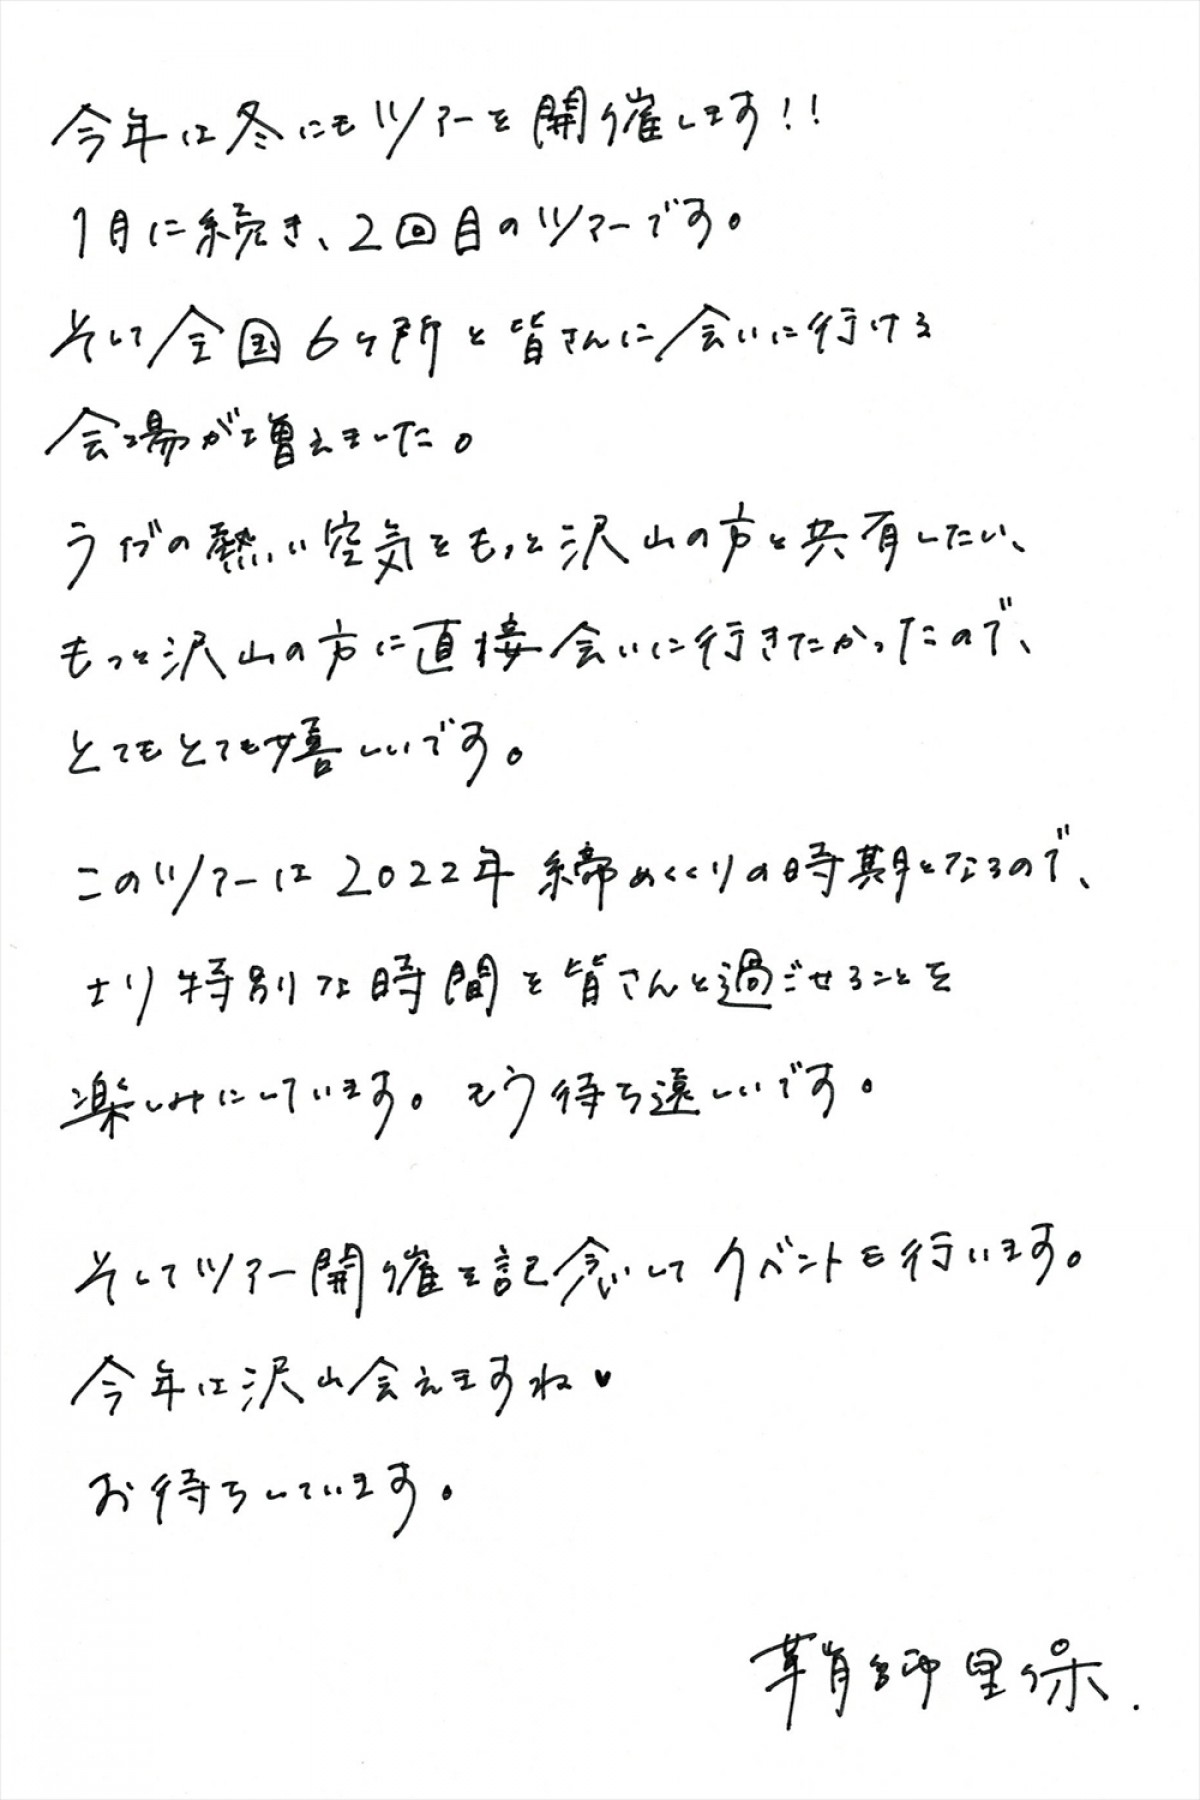 今年は冬にもツアーを開催します!!
1月に続き、2回目のツアーです。
そして全国6ヶ所と皆さんに会いに行ける
会場が増えました。
ライブの熱い空気をもっと沢山の方と共有したい、
もっと沢山の方に直接会いに行きたかったので、
とてもとても嬉しいです。
このツアーは2022年締めくくりの時期となるので、
より特別な時間を皆さんと過ごせることを
楽しみにしています。もう待ち遠しいです。
そしてツアー開催を記念してイベントを行います。
今年は沢山会えますね♥
お待ちしています。
鞘師里保.